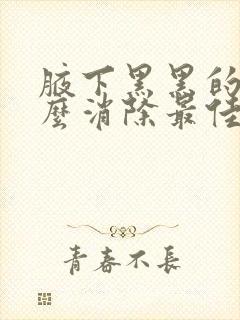 腋下黑黑的
麼消除最佳
青春不長